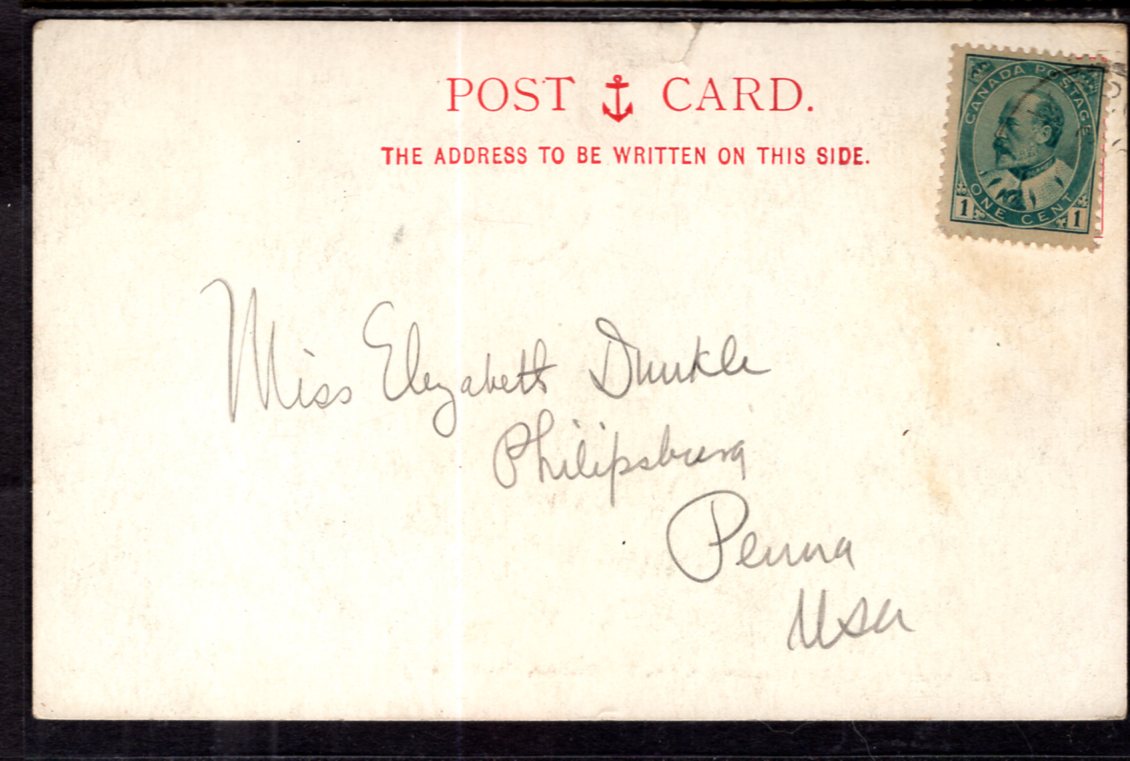 POST CARD.
THE ADDRESS TO BE WRITTEN ON THIS SIDE.
CANADA POSTAGE
ONE CENT
1 1
Miss Elizabeth Dunkle
Philipsburg
Penna
USA